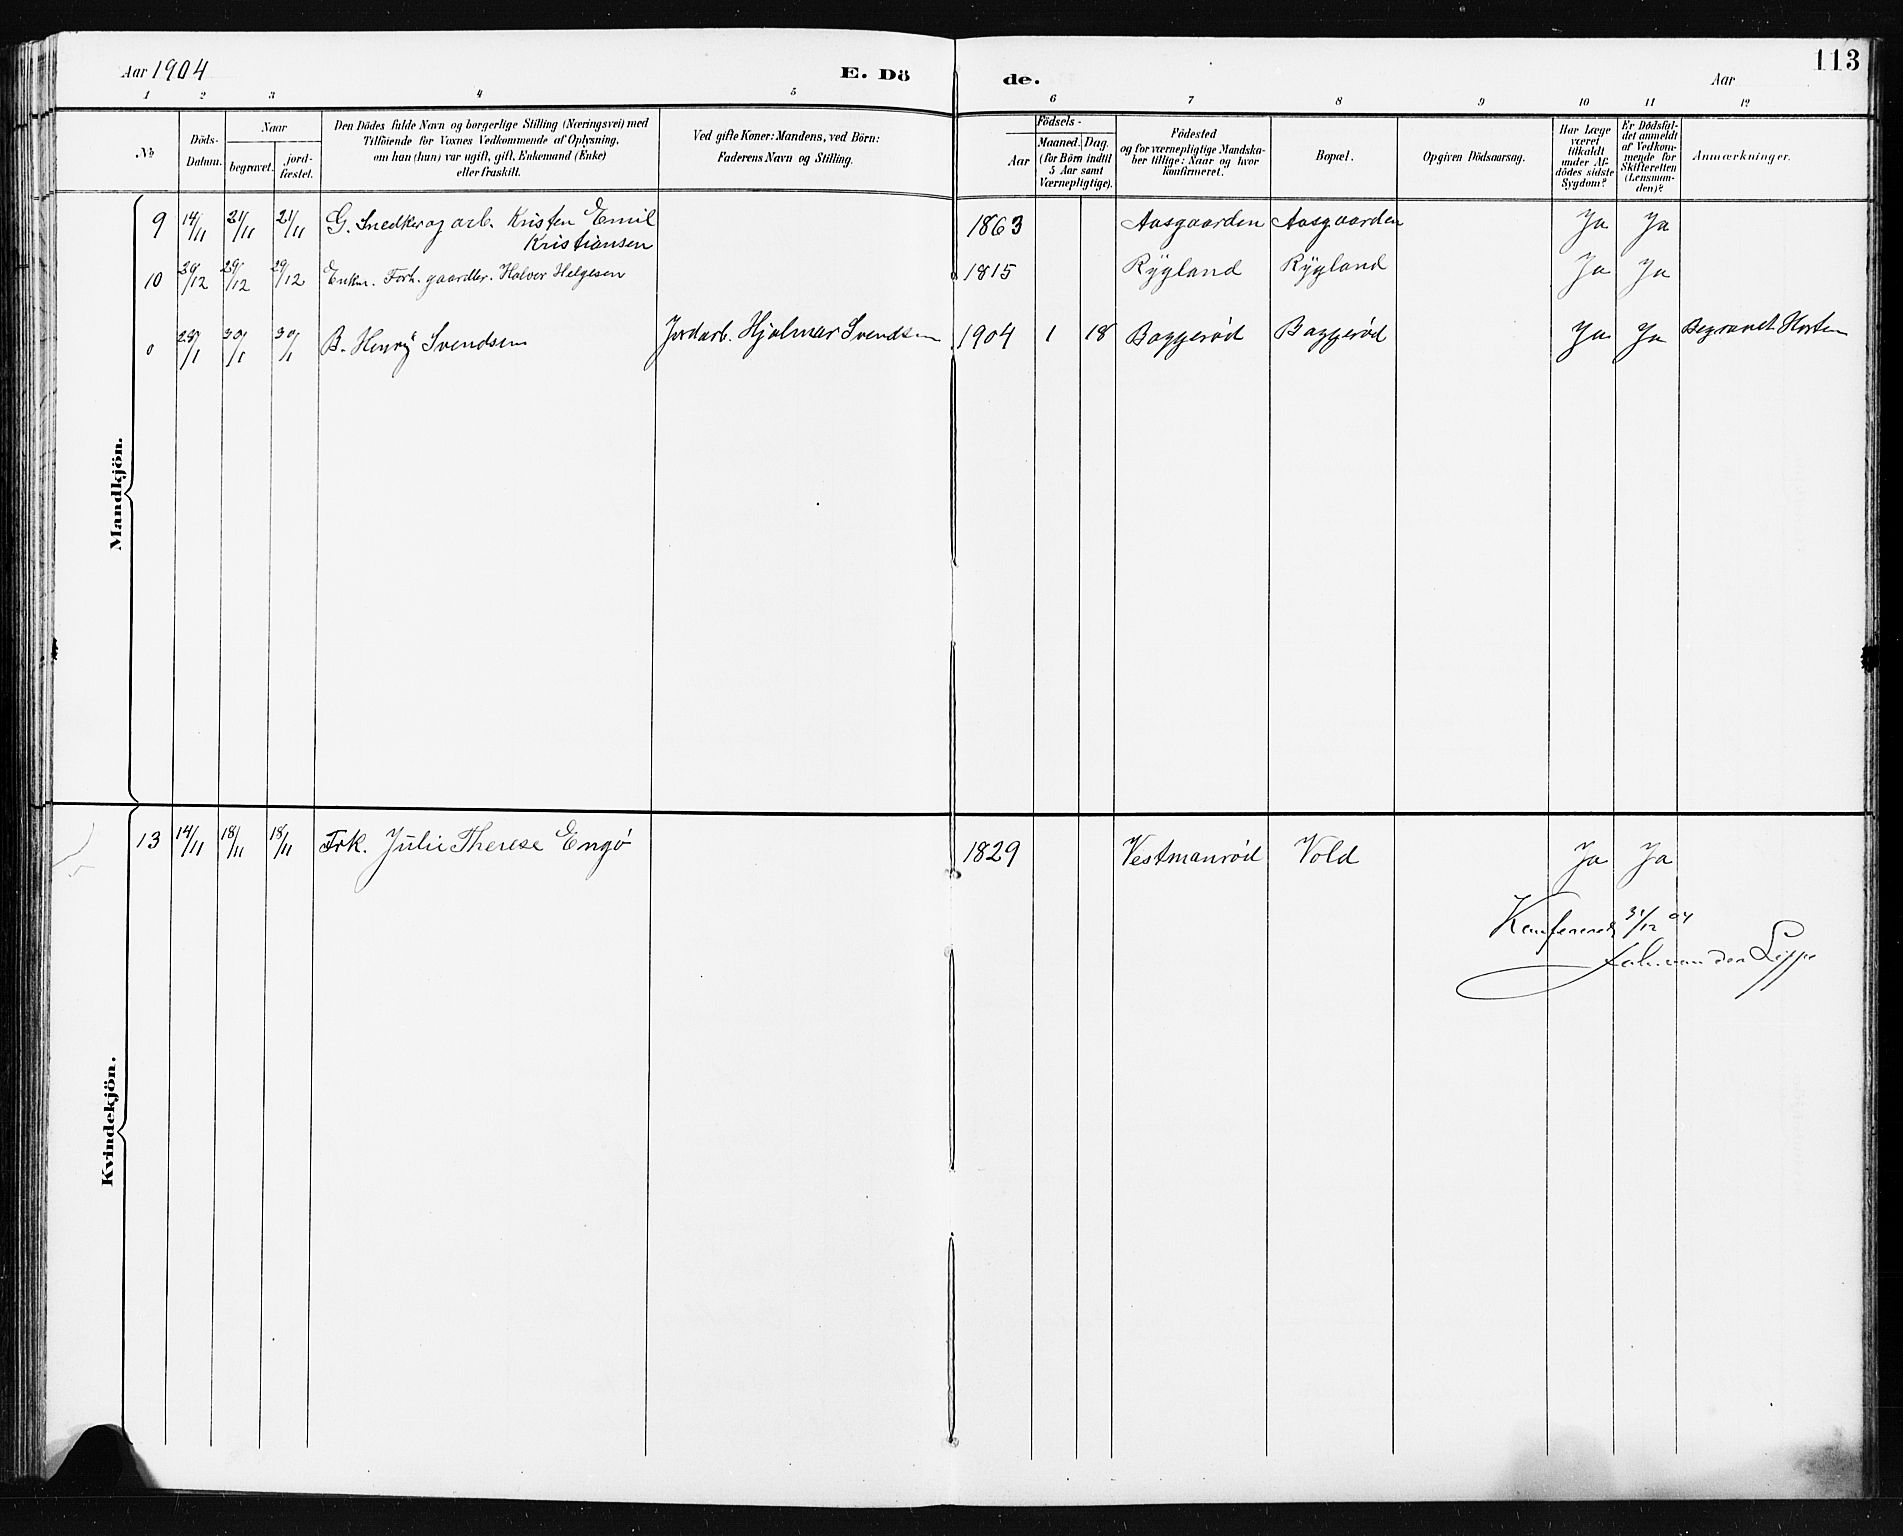 Aar 1904 E. Dö de. Aar 113
1 2 3 4 5 6 7 8 9 10 11 12
№ Döds-Datum. Naar begravet. jord-fæstet. Den Dödes fulde Navn og borgerlige Stilling (Næringsvei) med
Tilföiende for Voxnes Vedkommende af Oplysning,
om han (hun) var ugift, gift, Enkemand (Enke)
eller fraskilt.
Ved gifte Koner: Mandens, ved Börn:
Faderens Navn og Stilling.
Födsels-
Aar Maaned. Dag.
(for Börn indtil
5 Aar samt
Værnepligtige).
Födested
og for værnepligtige Mandska-
ber tillige: Naar og hvor
konfirmeret.
Bopæl.
Opgiven Dödsaarsag.
Har Læge
været
tilkaldt
under Af-
dödes sidste
Sygdom?
Er Dödsfal-
det anmeldt
af Vedkom-
mende for
Skifteretten
(Lensman-
den)?
Anmærkninger.
Mandkjön.
9 14/11 21/11 21/11 G. Snedker og arb. Kristen Emil 1863 Aasgaarden Aasgaarden Ja Ja
Kristiansen
10 /12 29/12 29/12 Enkm. Forh. gaardbr. Halvor Helgesen 1815 Rÿgland Rÿgland Ja Ja
0 /1 30/1 30/1 B. Henrÿ Svendsen Jordarb. Hjalmar Svendsen 1904 1 18 Baggerød Baggerød Ja Ja Begravet Horten
Kvindekjön.
13 14/11 18/11 18/11 Frk. Julie Therese Engø 1829 Vestmanrød Vold Ja Ja
Konfereret 31/12 04
van der Lippe